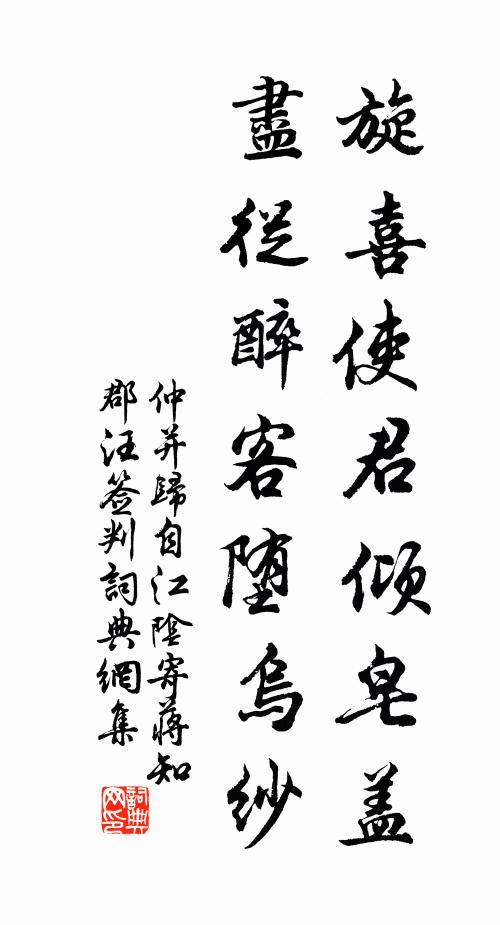 旋喜使君倾皂盖
盡從醉客堕烏紗
仲并歸自江陰寄蔣知
郡汪签判詞典網集
詞典网印